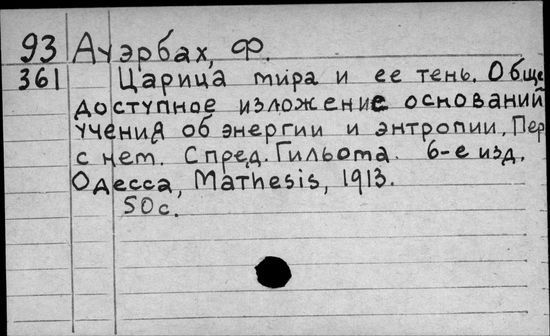 93 Ауэрбах, Ф.
361 Царица мира и ее тень. Обще
доступное изложение оснований
учения об энергии и энтропии, Пер
с нем. С пред. Гильома. 6-е изд.
Одесса, Mathesis, 1913.
50с.